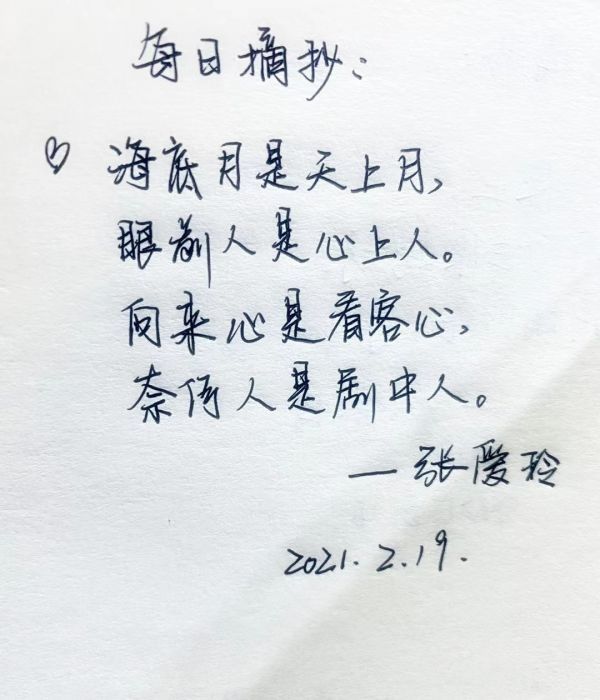 每日摘抄：
海底月是天上月，
眼前人是心上人。
向来心是看客心，
奈何人是剧中人。
—张爱玲
2021.2.19.